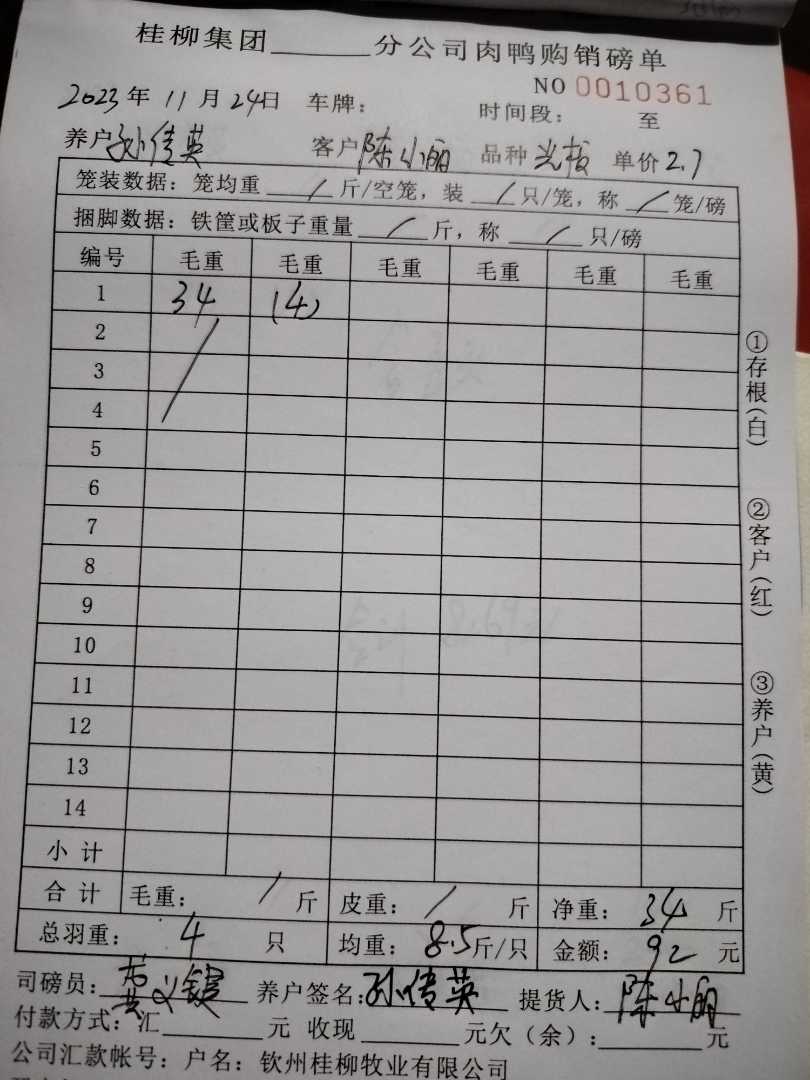 桂柳集团______分公司肉鸭购销磅单
NO 0010361
2023年 11月 24日 车牌： 时间段： 至
养户 孙传英 客户 陈小丽 品种 光板 单价 2.7
笼装数据：笼均重 / 斤/空笼，装 / 只/笼，称 / 笼/磅
捆脚数据：铁筐或板子重量 / 斤，称 / 只/磅
编号 毛重 毛重 毛重 毛重 毛重 毛重
1 34 (4)
2
3
4
5
6
7
8
9
10
11
12
13
14
小计
合计 毛重： / 斤 皮重： / 斤 净重： 34 斤
总羽重： 4 只 均重： 8.5斤/只 金额： 92 元
司磅员： 养户签名：孙传英 提货人：陈小丽
付款方式：汇______元 收现______元欠（余）：______元
公司汇款帐号：户名：钦州桂柳牧业有限公司
①存根(白)
②客户(红)
③养户(黄)